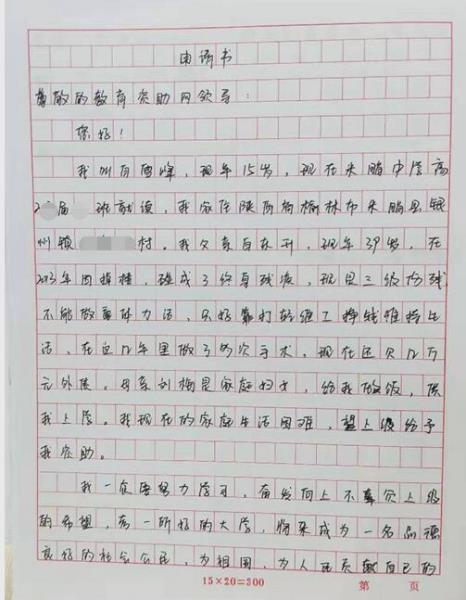 申请书
尊敬的教育资助网领导:
您好!
我叫白雪峰,现年15岁,现在米脂中学高
2 届 班就读,我家住陕西省榆林市米脂县银
州镇 村。我父亲白东升,现年39岁,在
2013年因掉楼,造成了终身残疾,现是三级伤残
不能做重体力活,只好靠打乾继工挣钱维持生
活,在这几年里做了多次手术,现在还欠12万
元外债。母亲刘梅是家庭妇女,给我做饭,供
我上学。我现在的家庭生活困难,望上级给予
我资助。
我一定要努力学习,奋发向上不辜负上级
的希望,考一所好的大学,将来成为一名品德
良好的社会公民,为祖国,为人民贡献自己的
15×20=300
第 页